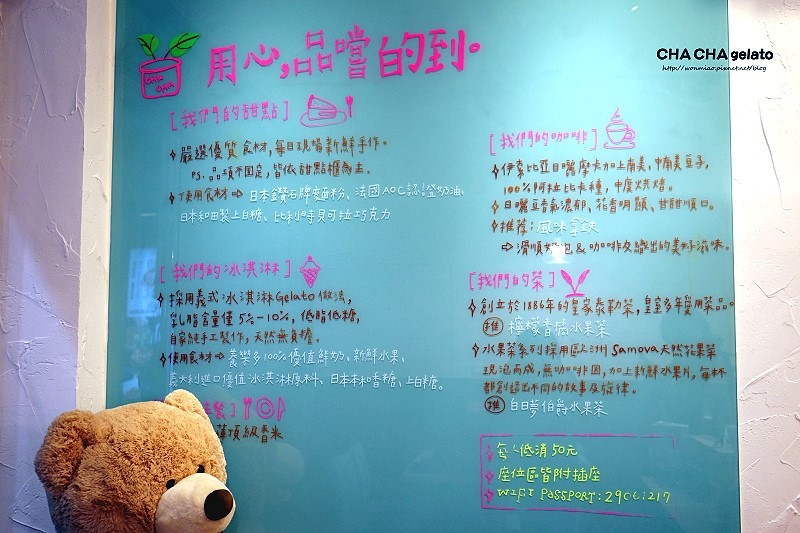 CHA CHA gelato
http://wonmiao.pixnet.net/blog
CHA
CHA
用心,品嚐的到。
[我們的甜點]
嚴選優質食材,每日現場新鮮手作。
PS.品項不固定,皆依甜點櫃為主。
使用食材⇨日本鑽石牌麵粉、法國AOC認證奶油、
日本和田製上白糖、比利時貝可拉巧克力
[我們的冰淇淋]
採用義式冰淇淋Gelato做法,
乳脂含量僅5%-10%,低脂低糖,
自家純手工製作,天然無負擔。
使用食材⇨養樂多100%優値鮮奶、新鮮水果、
義大利進口優値冰淇淋原料、日本本和香糖、上白糖。
餐]
頂級香米
[我們的咖啡]
伊索比亞日曬摩卡加上南美、中南美豆子,
100%阿拉比卡種,中度烘焙。
日曬豆香氣濃郁、花香明顯、甘甜順口。
推荐:風味拿鉄
⇨滑順奶泡&咖啡交織出的美妙滋味。
[我們的茶]
創立於1886年的皇家泰勒茶,皇室多年愛用茶品。
推 檸檬香橘水果茶
水果茶系列採用歐洲Samova天然花果茶
現泡而成,無咖啡因,加上新鮮水果片,每杯
都創造出不同的故事及旋律。
推 白日夢伯爵水果茶
每人低消50元
座位區皆附插座
WIFI PASSPORT:29061217